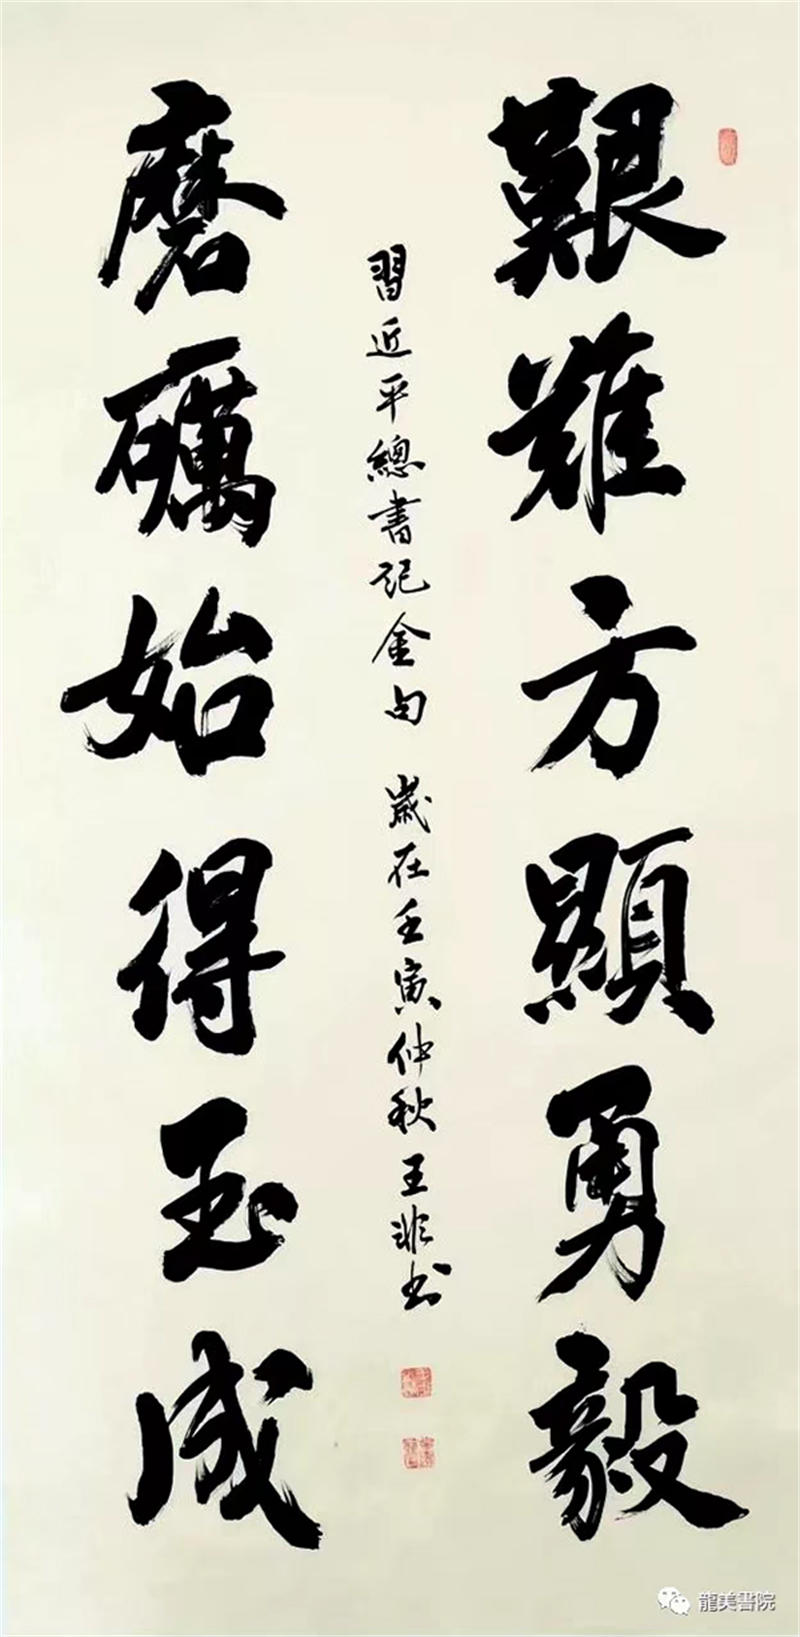 艱難方顯勇毅
磨礪始得玉成
習近平總書記金句 歲在壬寅仲秋王非书
龍美書院